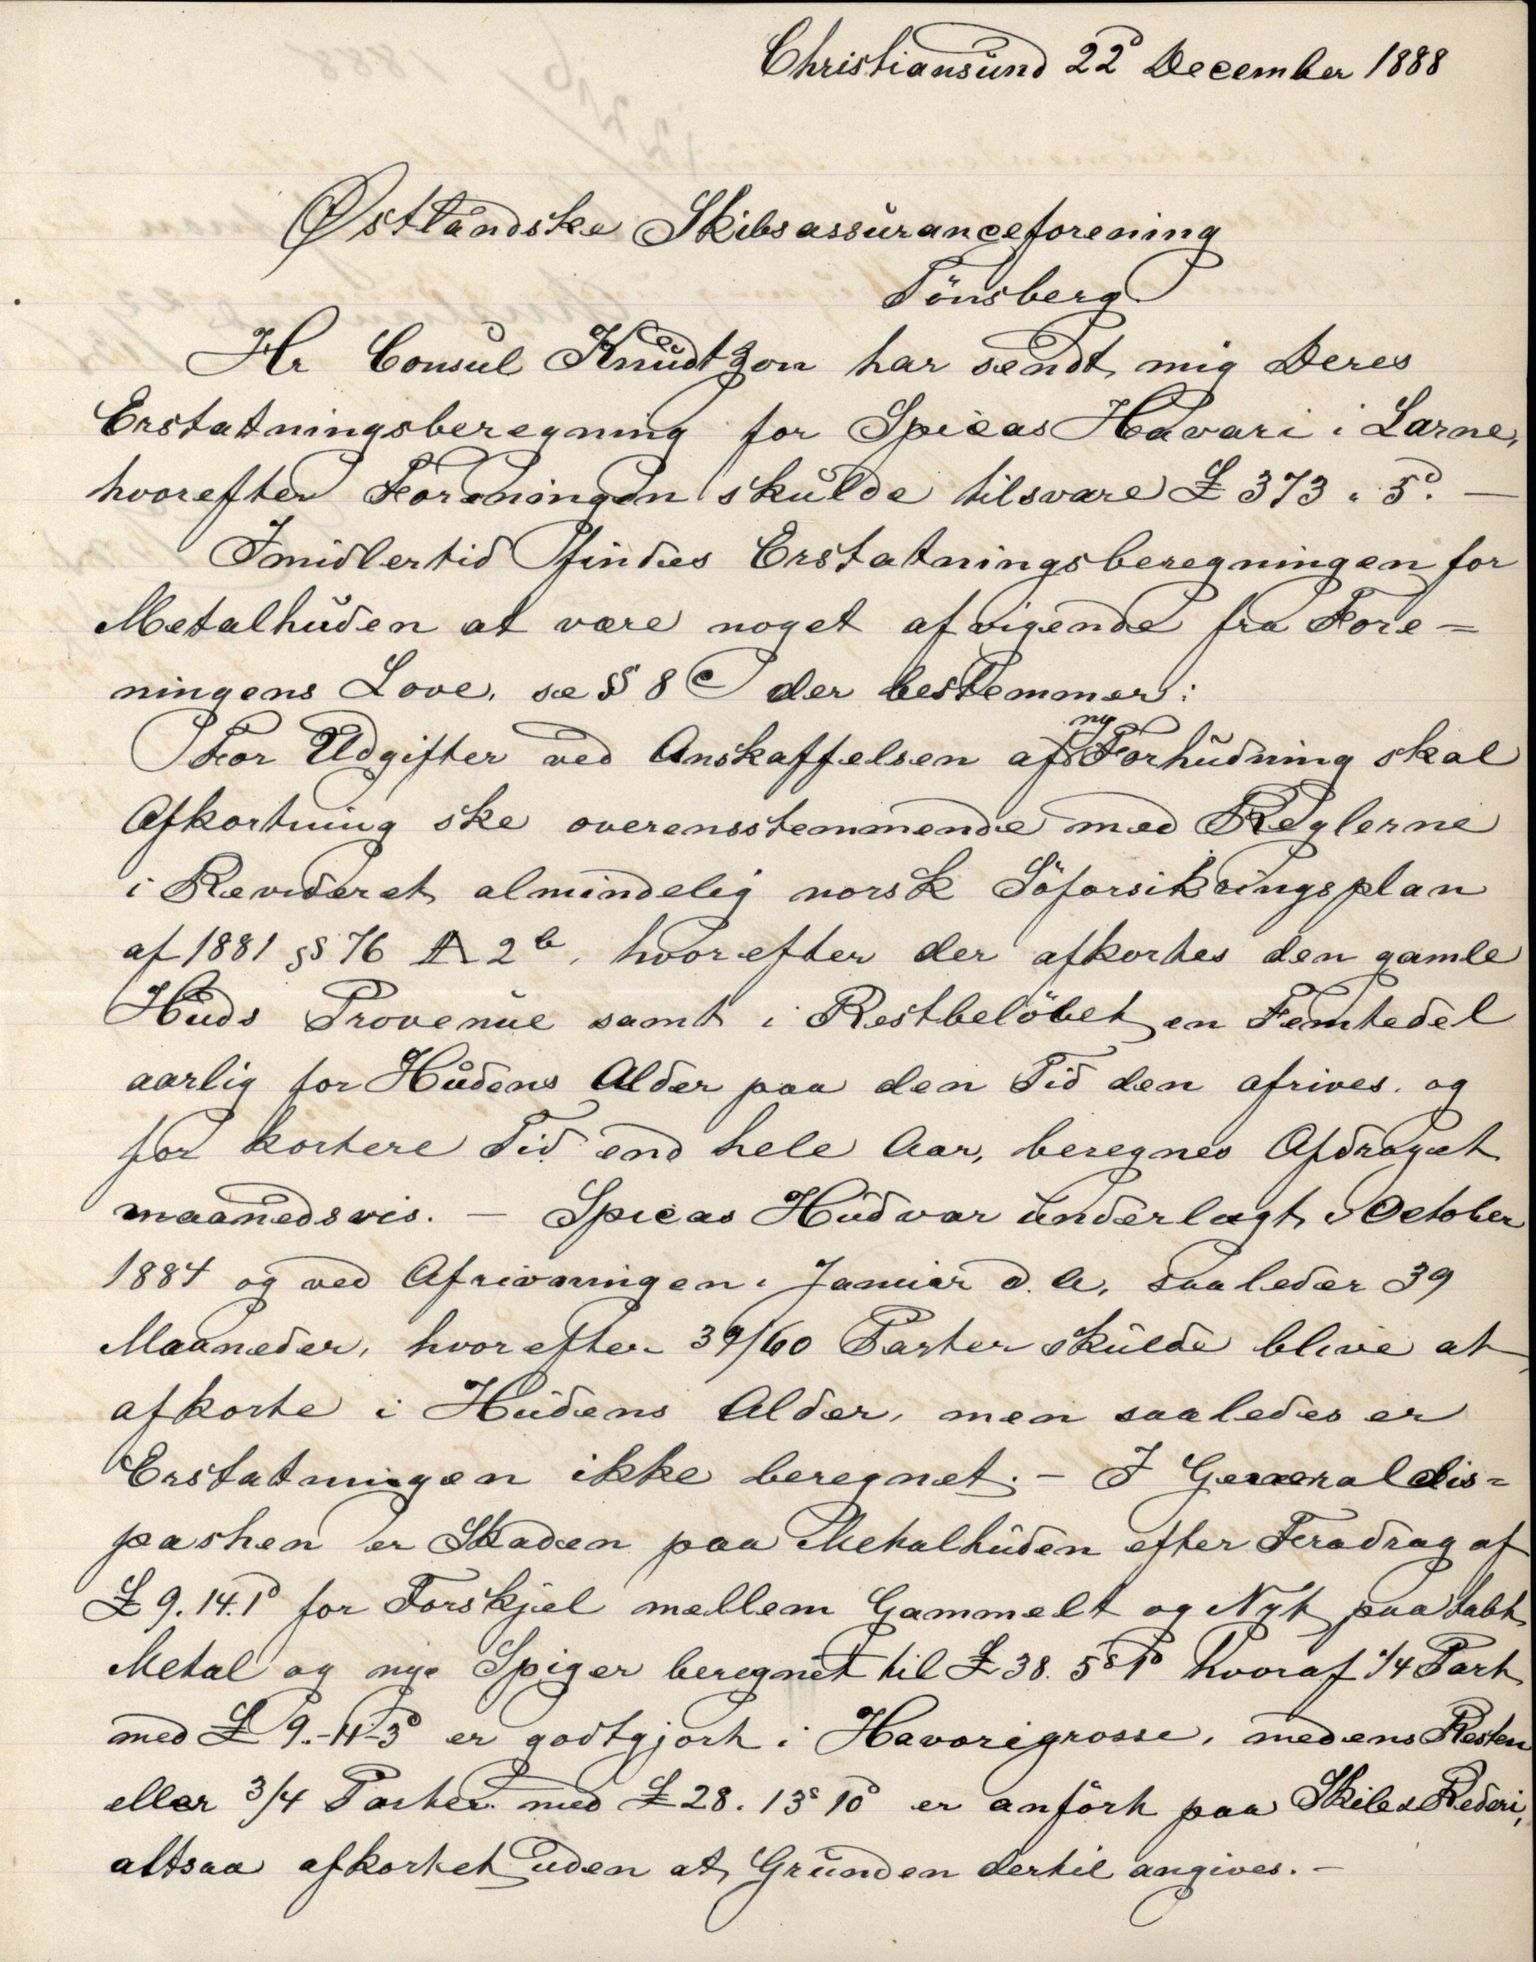 Christiansund 22d December 1888
Østlandske Skibsassuranceforening
Tönsberg
Hr Consul Knudtzon har sendt mig Deres
Erstatningsberegning for Spicas Havari i Larne,
hvorefter Foreningen skulde tilsvare £ 373 " 5d. —
Imidlertid findes Erstatningsberegningen for
Metalhuden at være noget afvigende fra Fore=
ningens Love, se § 8 c der bestemmer:
For Udgifter ved Anskaffelsen af ny Forhudning skal
Afkortning ske overensstemmende med Reglerne
i Revideret almindelig norsk Söforsikringsplan
af 1881 § 76 A 2b, hvorefter der afkortes den gamle
Huds Provenue samt i Restbelöbet en Femtedel
aarlig for Hudens Alder paa den Tid den afrives, og
for kortere Tid end hele Aar, beregnes Afdraget
maanedsvis. — Spicas Hud var underlagt i October
1884 og ved Afrivningen i Januar d. A, saaledes 39
Maaneder, hvorefter 39/60 Parter skulde blive at
afkorte i Hudens Alder, men saaledes er
Erstatningen ikke beregnet. — I Generaldis=
pashen er Skaden paa Metalhuden efter Fradrag af
£ 9. 14. 1d for Forskjel mellem Gammelt og Nyt paa tabt
Metal og nye Spiger beregnet til £ 38. 5s 1d hvoraf 1/4 Part
med £ 9.-11-3d er godtgjort i Havarigrosse, medens Resten
eller 3/4 Parter med £ 28. 13s 10d er anfört paa Skib & Rederi,
altsaa afkortet uden at Grunden dertil angives. —